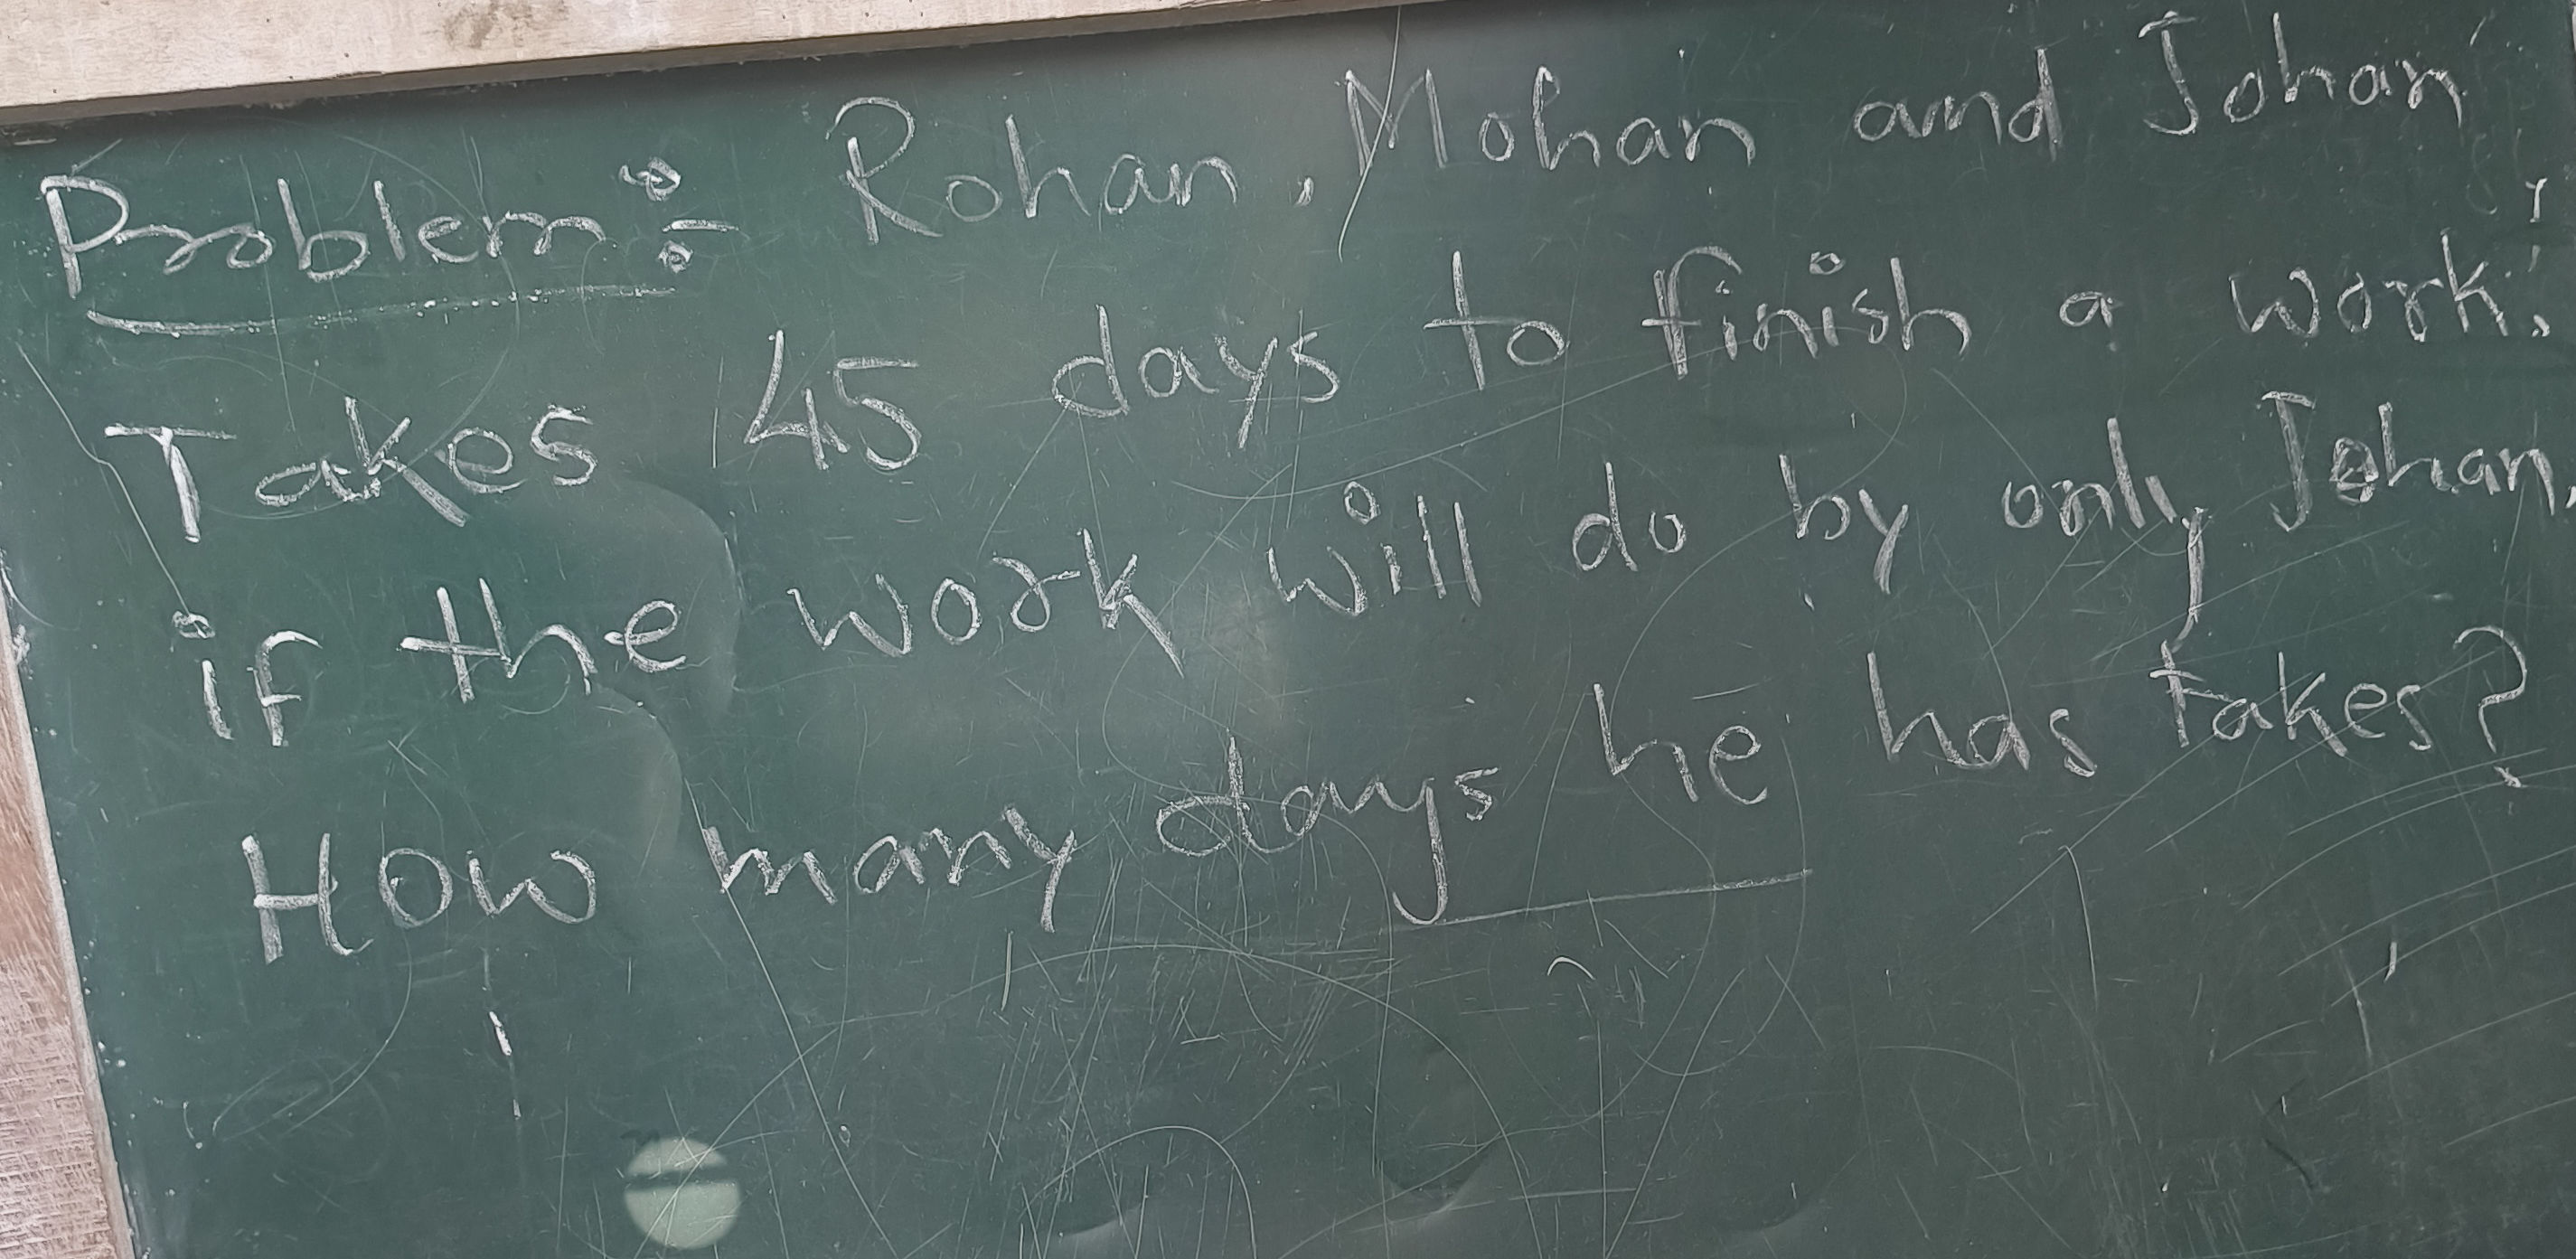 Problem:- Rohan, Mohan and Johan
Takes 45 days to finish a work.
if the work will do by only Johan,
How many days he has takes?